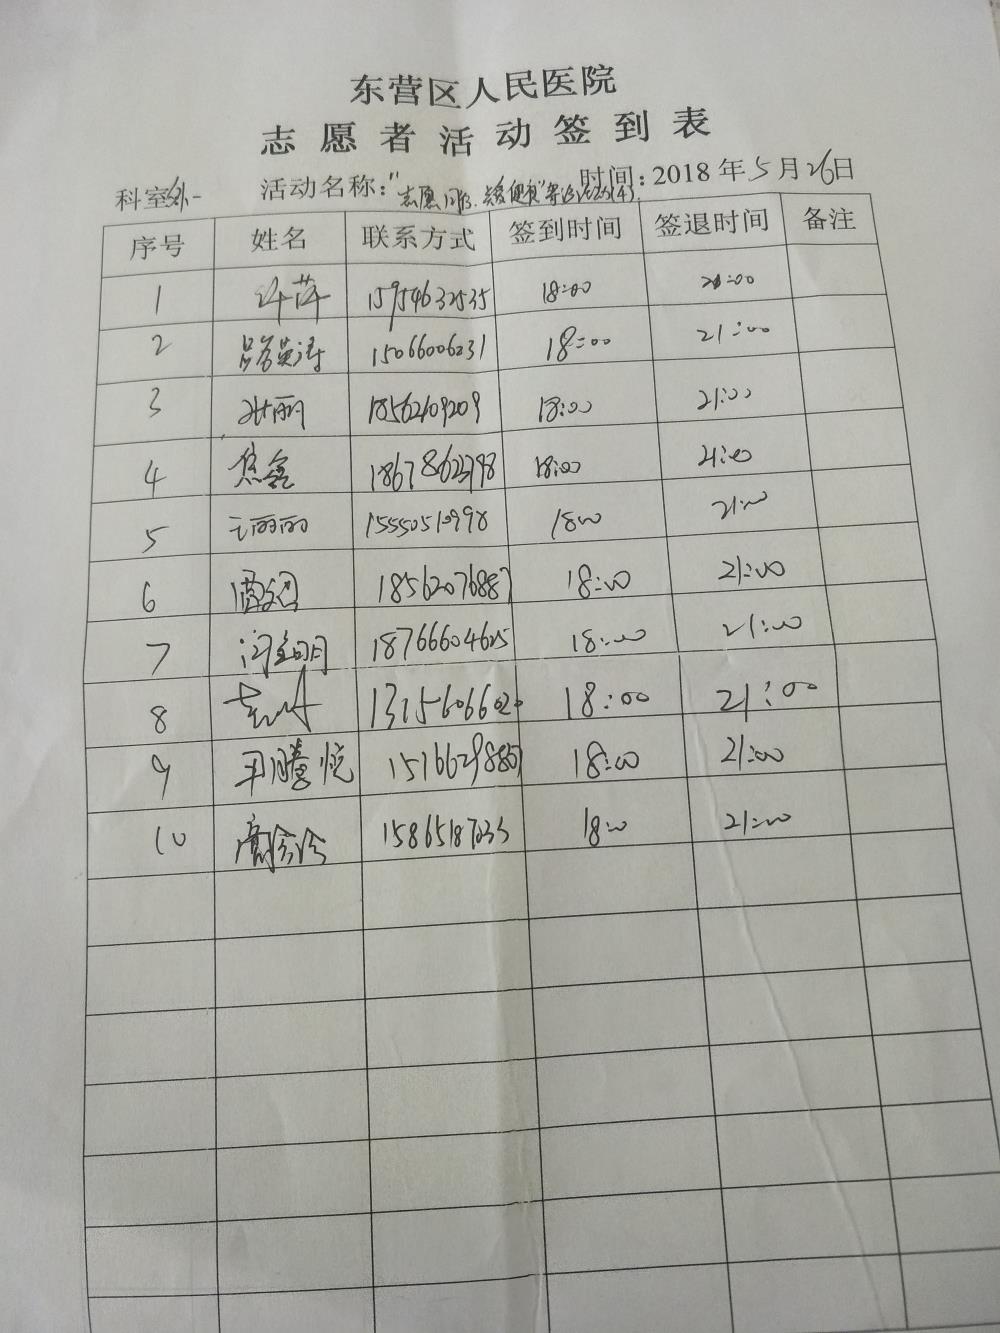 东营区人民医院
志愿者活动签到表
科室:外一 活动名称:"志愿同行 时间:2018年5月26日
序号 姓名 联系方式 签到时间 签退时间 备注
1 许萍 15954632535 18:00 21:00
2 吕英涛 15066006231 18:00 21:00
3 张丽 18562109209 18:00 21:00
4 焦鑫 18678623798 18:00 21:00
5 王丽丽 15550510998 18:00 21:00
6 18562076887 18:00 21:00
7 18766604625 18:00 21:00
8 13156066020 18:00 21:00
9 王腾悦 18:00 21:00
10 高玲玲 15865187033 18:00 21:00